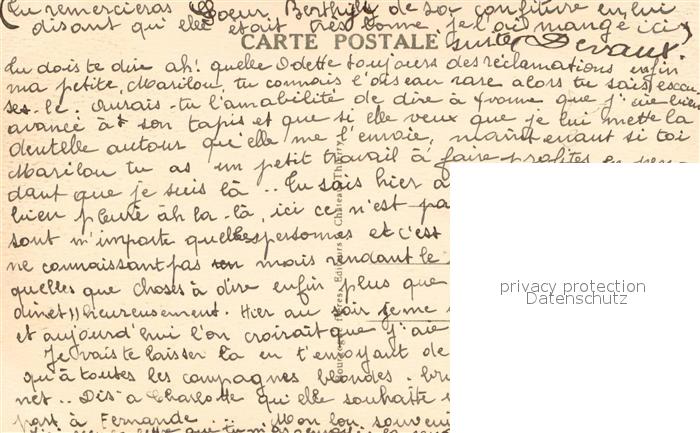 (Tu remercieras Soeur Berthylle de sa confiture en lui
disant qu'elle était très bonne je l'ai mangé ici)
CARTE POSTALE suite (Devant.
Tu dois te dire ah! quelle Odette toujours des réclamations enfin
ma petite Marilou, tu connais l'oiseau rare alors tu sais excu
ses-le: Aurais-tu l'amabilité de dire à Yvonne que j'ai bien
avancé à son tapis et que si elle veux que je lui mette la
dentelle autour qu'elle me l'envoie, maintenant si toi
Marilou tu as un petit travail à faire profites en pen
dant que je suis là .. Tu sais hier
bien pleuré âh la-là, ici ce n'est pa
sont m'importe quelles personnes et c'est
ne connaissant pas mais rendant le
quelles que choses à dire enfin plus que
dinet)) heureusement. Hier au soir je me
et aujourd'hui l'on croirait que j'aie
Je vais te laisser là en t'envoyant de
qu'à toutes les compagnes blondes. bru
net.. Dis à Charlotte qu'elle souhaite
part à Fernande ... Mon bon souveni
Frères, Editeurs Château-Thierry
privacy protection
Datenschutz